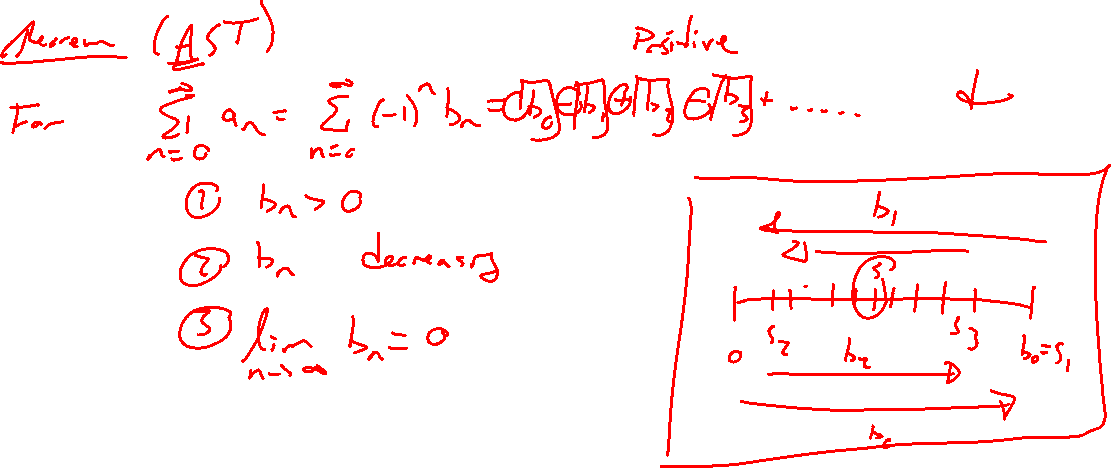 Theorem (AST)
Positive
For ∞ ∑ n=0 aₙ = ∞ ∑ n=0 (-1)ⁿ bₙ = b₀ - b₁ + b₂ - b₃ + .....
① bₙ > 0
② bₙ decreasing
③ lim n→∞ bₙ = 0
b₁
S
0 S₂ S₃ b₀=S₁
b₂
b₀